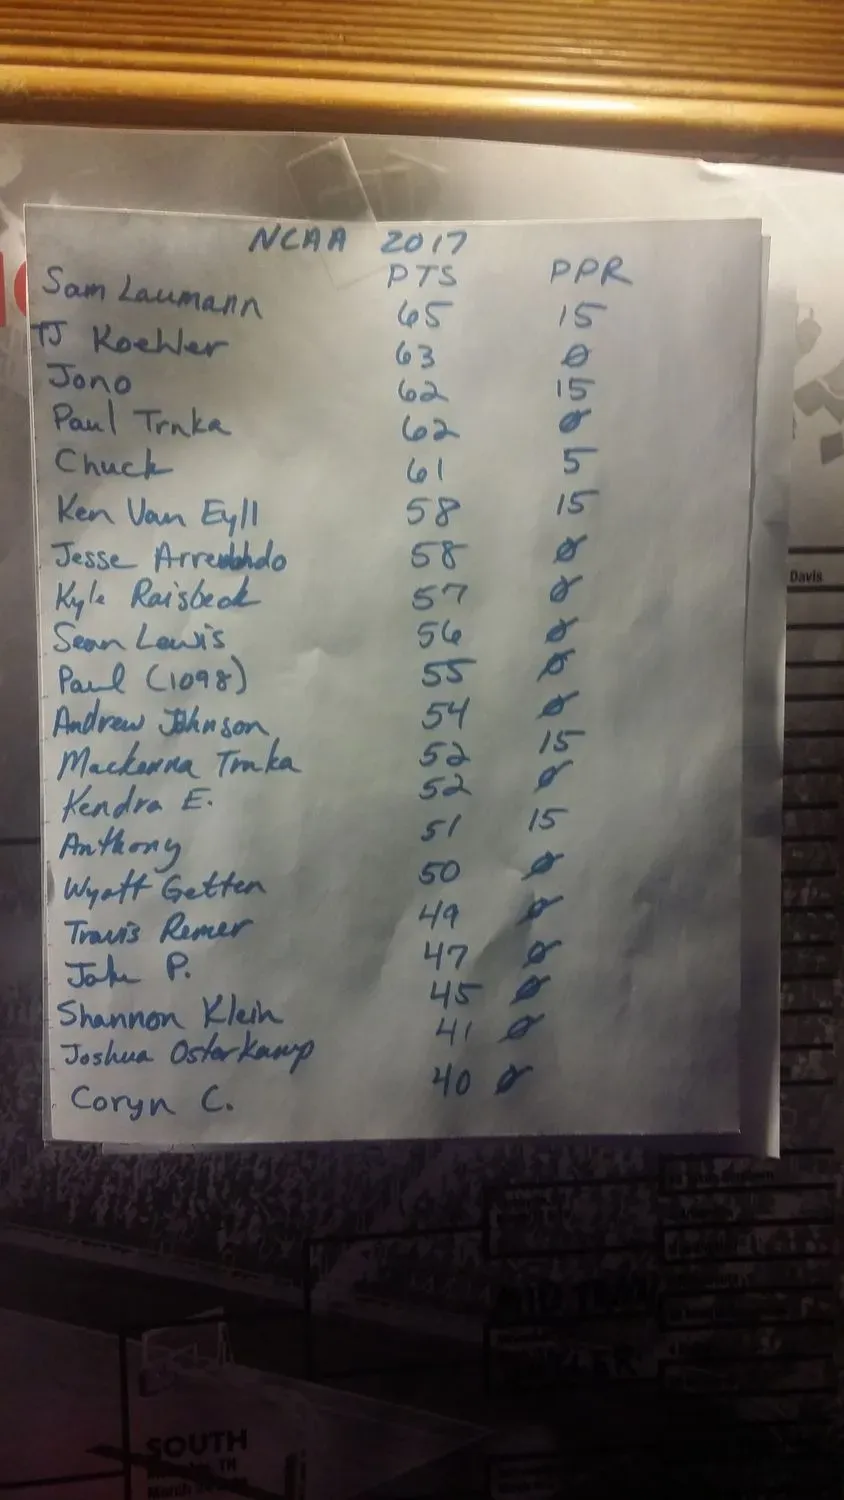 NCAA 2017
PTS PPR
Sam Laumann 65 15
TJ Koehler 63 Ø
Jono 62 15
Paul Trnka 62 Ø
Chuck 61 5
Ken Van Eyll 58 15
Jesse 58 Ø
Kyle Raisbeck 57 Ø
Sean Lewis 56 Ø
Paul (1098) 55 Ø
Andrew Johnson 54 Ø
Mackenna Trnka 52 15
Kendra E. 52 Ø
Anthony 51 15
Wyatt Getten 50 Ø
Travis Remer 49 Ø
Jake P. 47 Ø
Shannon Klein 45 Ø
Joshua Osterkamp 41 Ø
Coryn C. 40 Ø
Davis
SOUTH
Memphis, TN